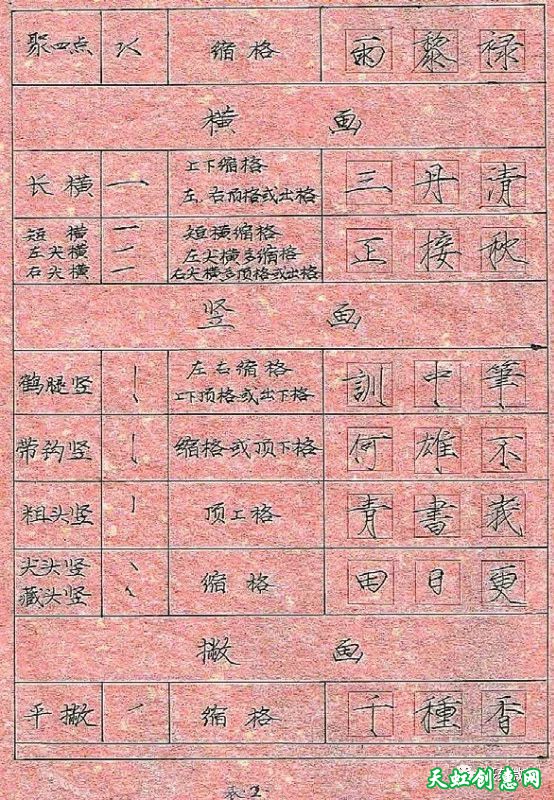 聚四点 缩格 雨 黎 禄
横 画
长横 一 上下缩格
左、右顶格或出格 三 丹 清
短横 短横缩格
左尖横 左尖横多缩格 正 接 秋
右尖横 右尖横多顶格或出格
竖 画
鹤腿竖 左右缩格
上下顶格或出下格 訓 中 筆
带钩竖 缩格或顶下格 何 雄 不
粗头竖 顶上格 青 書
尖头竖
藏头竖 缩格 田 日 更
撇 画
平撇 缩格 千 種 香
表2
天虹创意网